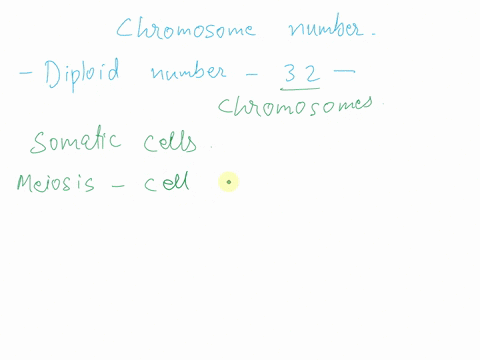 Chromosome number.
- Diploid number - 32 -
Chromosomes.
Somatic cells.
Meiosis - cell